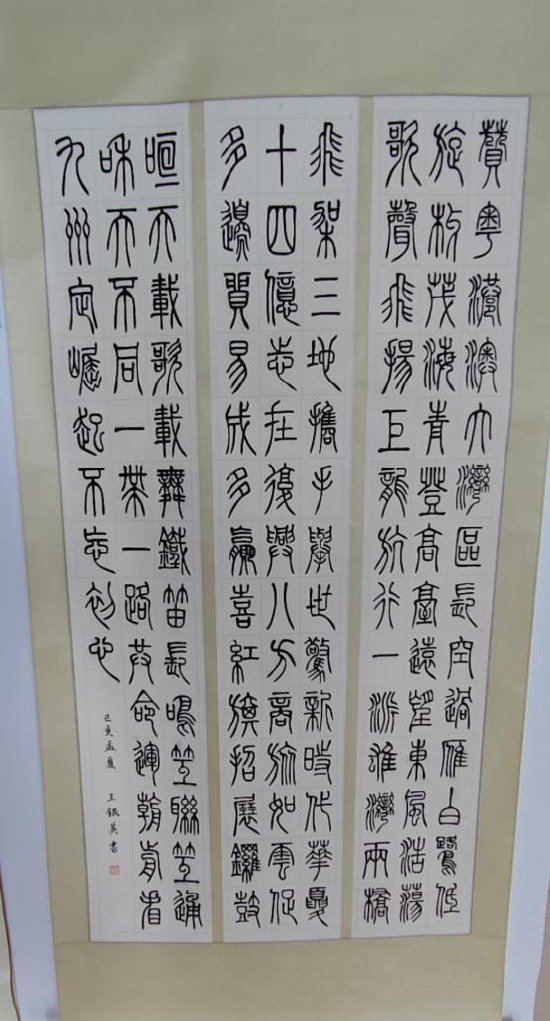 贊粵港澳大灣區長空過雁白鷺低
旋茂海青登高臺遠望東風浩蕩
歌聲飛揚巨龍航行一灣兩橋
飛架三地攜手舉世驚新時代華夏
十四億志在復興八方商旅如雲促
多邊貿易成多贏喜紅旗招展鑼鼓
喧天載歌載舞鐵笛長鳴互聯互通
和而不同一帶一路共命運朝前看
九州定崛起不忘初心
己亥孟夏 王銀英書